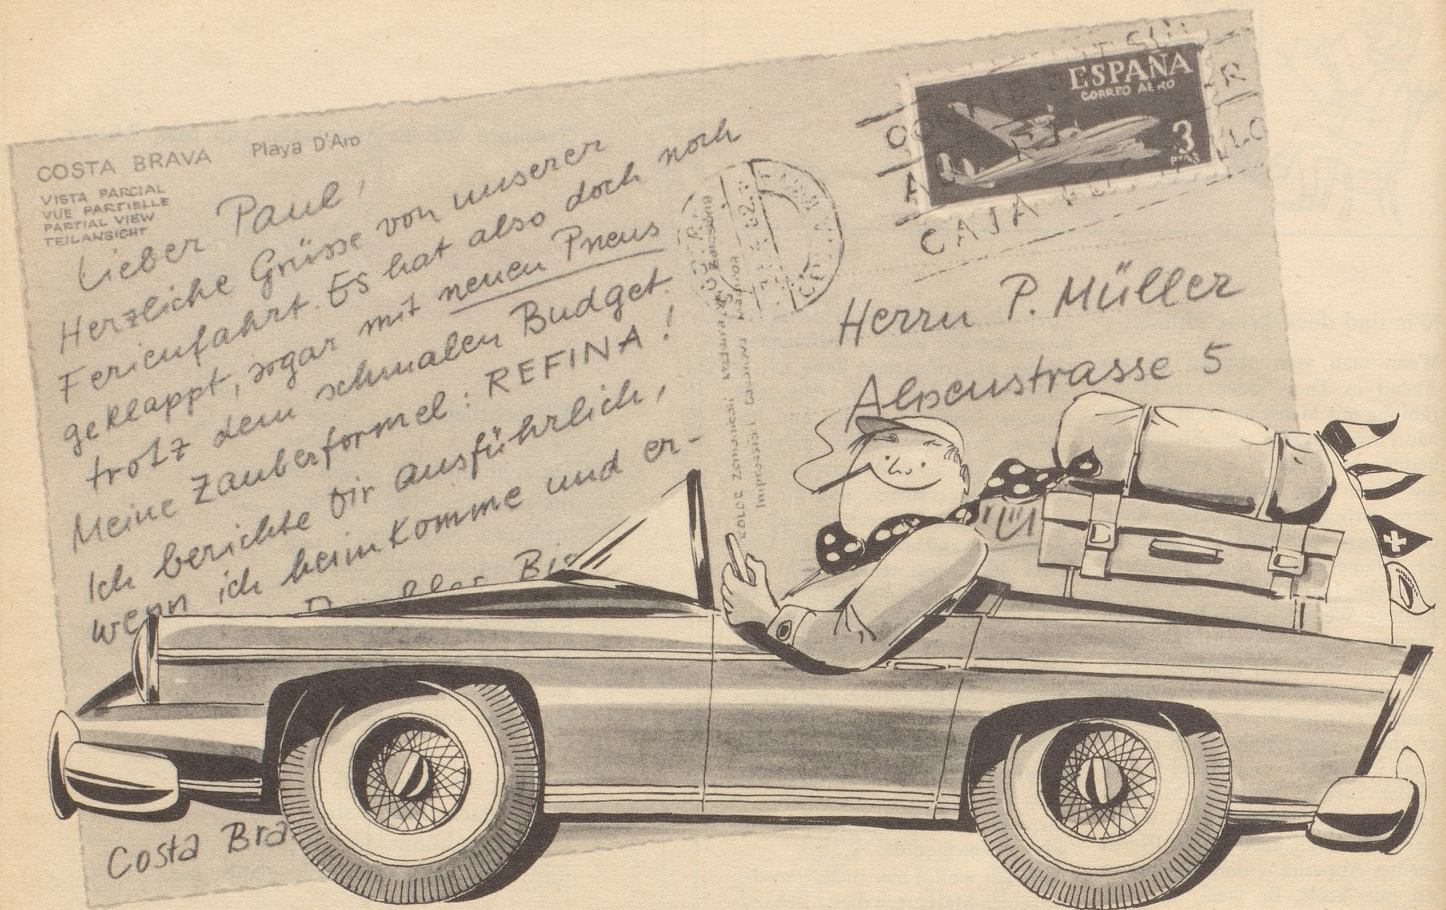 COSTA BRAVA Playa D'Aro
VISTA PARCIAL
VUE PARTIELLE
PARTIAL VIEW
TEILANSICHT
Lieber Paul,
Herzliche Grüsse von unserer
Ferienfahrt. Es hat also doch noch
geklappt, sogar mit neuen Pneus
trotz dem schmalen Budget.
Meine Zauberformel: REFINA!
Ich berichte Dir ausführlich,
wenn ich heimkomme und er-
Costa Bra
ESPAÑA
CORREO AEREO
3
PTAS
CAJA
Herrn P. Müller
Alpenstrasse 5